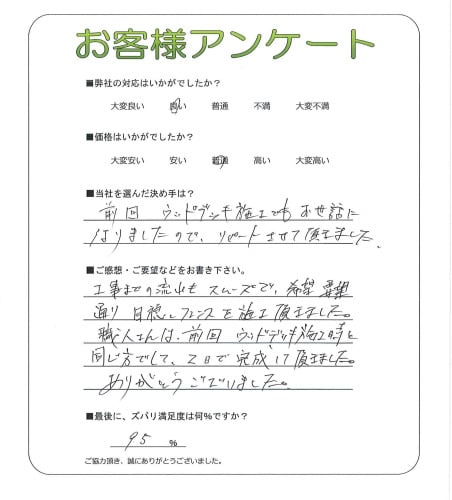 お客様アンケート
■弊社の対応はいかがでしたか？
大変良い 良い 普通 不満 大変不満
■価格はいかがでしたか？
大変安い 安い 普通 高い 大変高い
■当社を選んだ決め手は？
前回 ウッドデッキ施工でもお世話に
なりましたので、リピートさせて頂きました。
■ご感想・ご要望などをお書き下さい。
工事までの流れもスムーズで、希望 要望
通り目隠しフェンスを施工頂きました。
職人さんは、前回ウッドデッキ施工時と
同じ方でして、2日で完成して頂きました。
ありがとうございました。
■最後に、ズバリ満足度は何％ですか？
95 %
ご協力頂き、誠にありがとうございました。